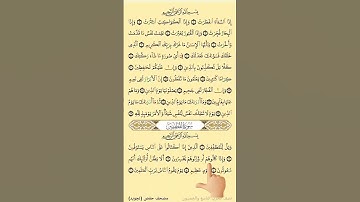 بِسْمِ ٱللَّهِ ٱلرَّحْمَٰنِ ٱلرَّحِيمِ
إِذَا ٱلسَّمَآءُ ٱنفَطَرَتْ ١ وَإِذَا ٱلْكَوَاكِبُ ٱنتَثَرَتْ ٢ وَإِذَا
ٱلْبِحَارُ فُجِّرَتْ ٣ وَإِذَا ٱلْقُبُورُ بُعْثِرَتْ ٤ عَلِمَتْ نَفْسٌ مَّا قَدَّمَتْ
وَأَخَّرَتْ ٥ يَٰٓأَيُّهَا ٱلْإِنسَٰنُ مَا غَرَّكَ بِرَبِّكَ ٱلْكَرِيمِ ٦ ٱلَّذِى
خَلَقَكَ فَسَوَّىٰكَ فَعَدَلَكَ ٧ فِىٓ أَىِّ صُورَةٍ مَّا شَآءَ رَكَّبَكَ ٨
كَلَّا بَلْ تُكَذِّبُونَ بِٱلدِّينِ ٩ وَإِنَّ عَلَيْكُمْ لَحَٰفِظِينَ ١٠
كِرَامًا كَٰتِبِينَ ١١ يَعْلَمُونَ مَا تَفْعَلُونَ ١٢ إِنَّ ٱلْأَبْرَارَ لَفِى نَعِيمٍ ١٣
وَإِنَّ ٱلْفُجَّارَ لَفِى جَحِيمٍ ١٤ يَصْلَوْنَهَا يَوْمَ ٱلدِّينِ ١٥ وَمَا هُمْ
عَنْهَا بِغَآئِبِينَ ١٦ وَمَآ أَدْرَىٰكَ مَا يَوْمُ ٱلدِّينِ ١٧ ثُمَّ مَآ أَدْرَىٰكَ مَا يَوْمُ
ٱلدِّينِ ١٨ يَوْمَ لَا تَمْلِكُ نَفْسٌ لِّنَفْسٍ شَيْـًٔا وَٱلْأَمْرُ يَوْمَئِذٍ لِّلَّهِ ١٩
سُورَةُ المُطَفِّفِينَ
بِسْمِ ٱللَّهِ ٱلرَّحْمَٰنِ ٱلرَّحِيمِ
وَيْلٌ لِّلْمُطَفِّفِينَ ١ ٱلَّذِينَ إِذَا ٱكْتَالُوا۟ عَلَى ٱلنَّاسِ يَسْتَوْفُونَ ٢
وَإِذَا كَالُوهُمْ أَو وَّزَنُوهُمْ يُخْسِرُونَ ٣ أَلَا يَظُنُّ أُو۟لَٰٓئِكَ أَنَّهُم
مَّبْعُوثُونَ ٤ لِيَوْمٍ عَظِيمٍ ٥ يَوْمَ يَقُومُ ٱلنَّاسُ لِرَبِّ ٱلْعَٰلَمِينَ ٦
مصحف حفص (تجويد)